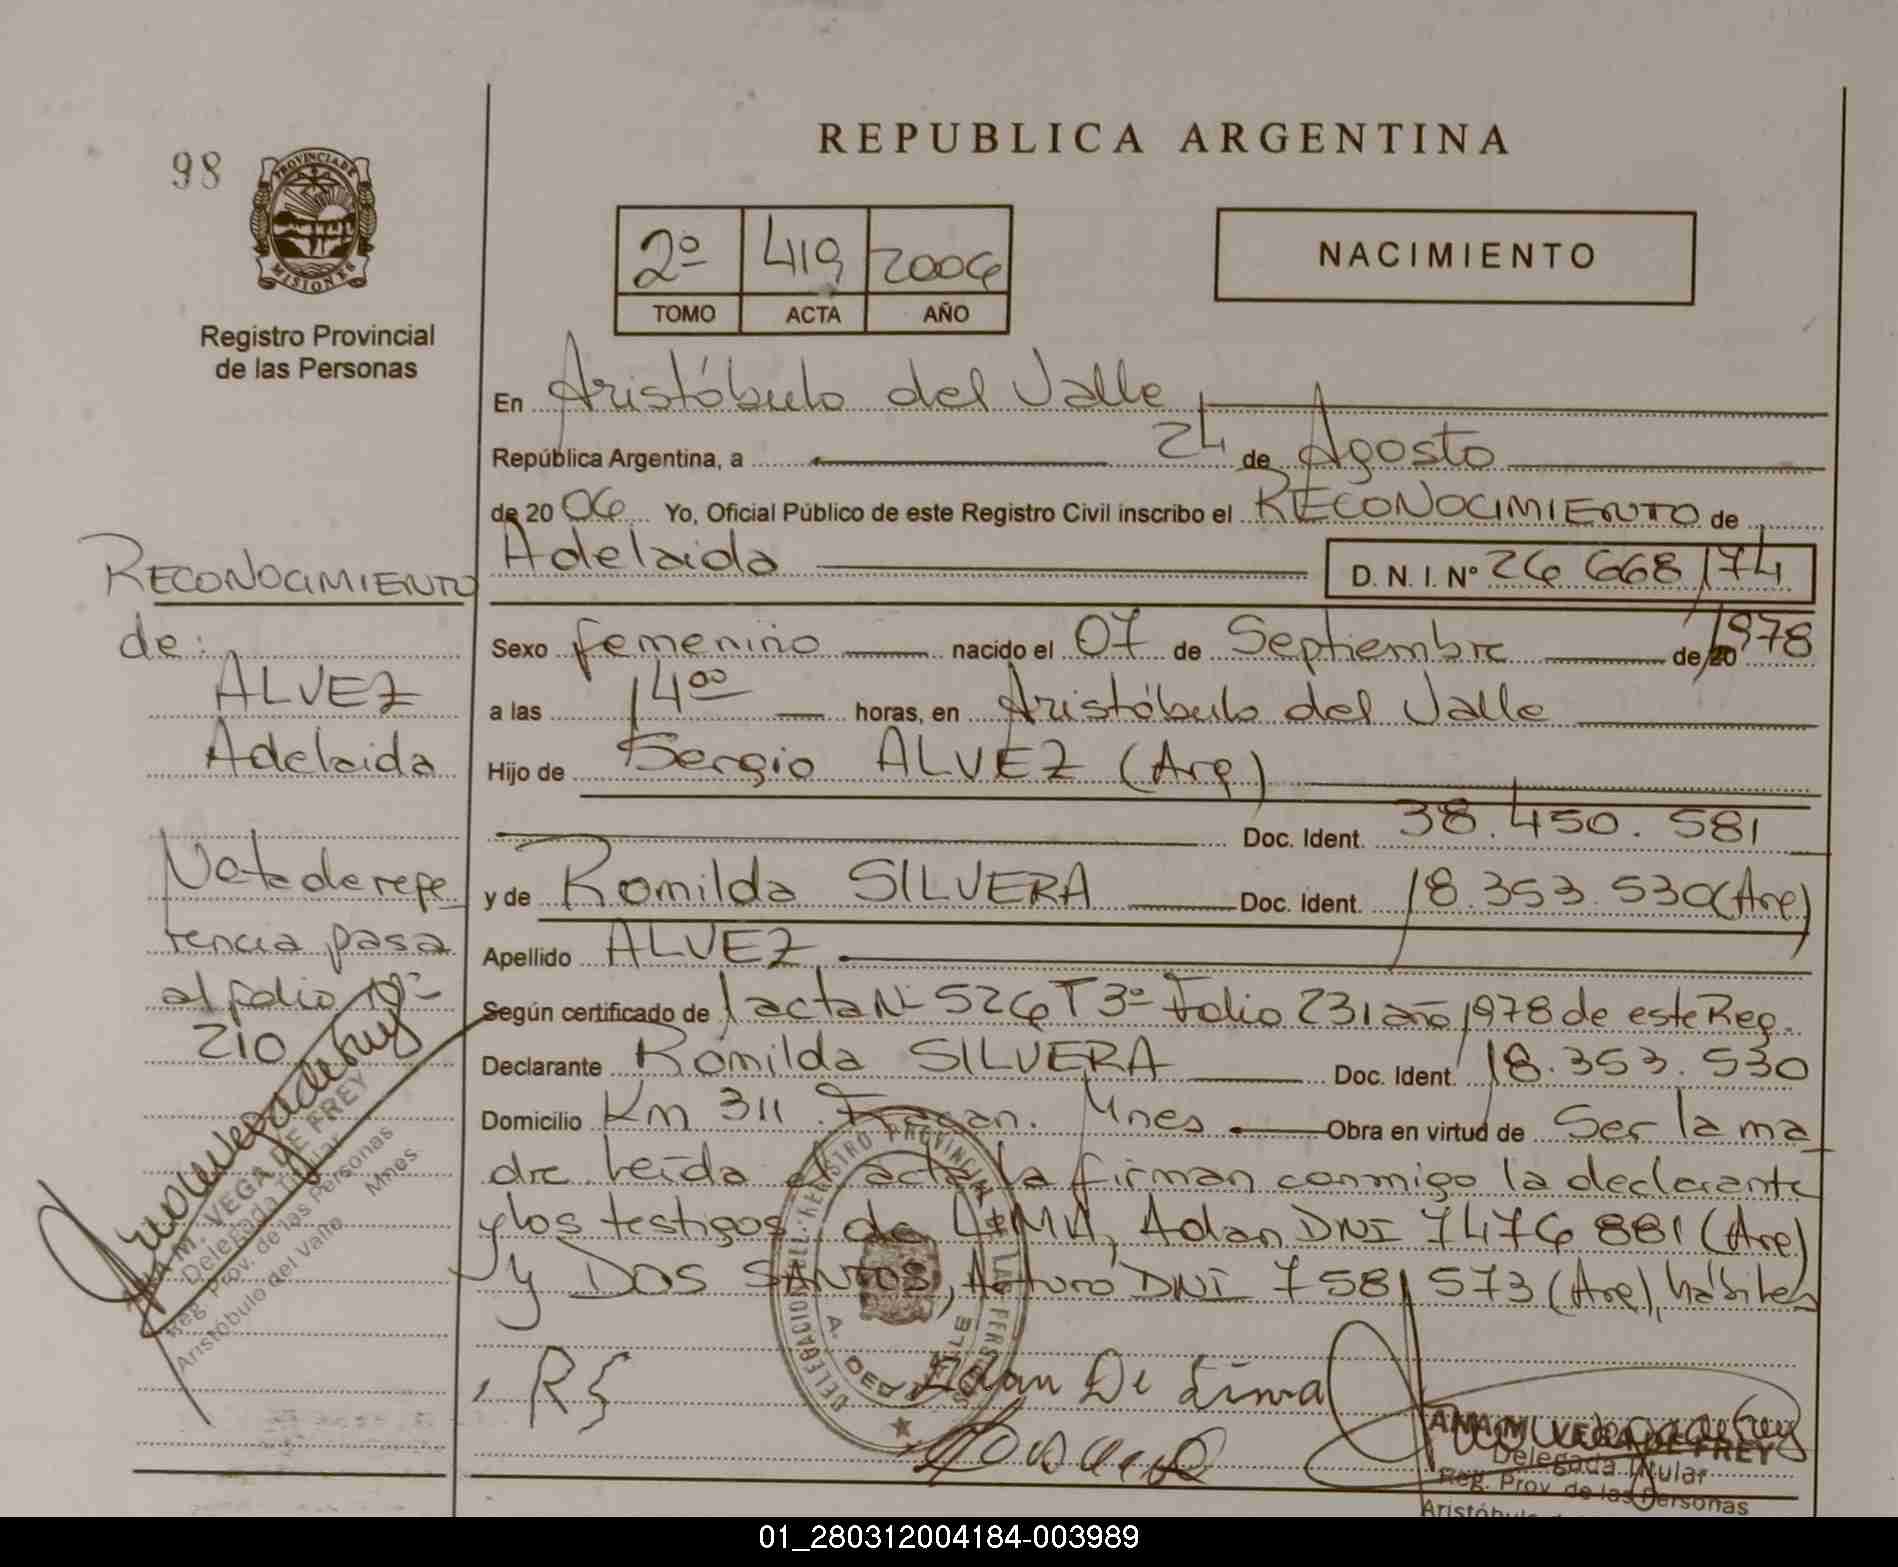 REPUBLICA ARGENTINA
98
PROVINCIA DE
MISIONES
Registro Provincial
de las Personas
2º 419 2006
TOMO ACTA AÑO
NACIMIENTO
En Aristóbulo del Valle
República Argentina, a 24 de Agosto
de 2006 Yo, Oficial Público de este Registro Civil inscribo el RECONOCIMIENTO de
Adelaida D. N. I. Nº 26 668 174
Sexo femenino nacido el 07 de Septiembre de 20 1978
a las 14 00 horas, en Aristóbulo del Valle
Hijo de Sergio ALVEZ (Arg)
Doc. Ident. 38.450.581
y de Romilda SILVERA Doc. Ident. 18.353.530 (Arg)
Apellido ALVEZ
Según certificado de 1 acta Nº 526 T 3º Folio 231 año 1978 de este Reg.
Declarante Romilda SILVERA Doc. Ident. 18.353.530
Domicilio Km 311 Mnes Obra en virtud de Ser la ma
dre leída el acta la firman conmigo la declarante
y los testigos de LIMA, Adan DNI 7476 881 (Arg)
y DOS SANTOS, Arturo DNI 7581 573 (Arg), hábiles
RS
Adan De Lima
ANA M. VEGA DE FREY
Delegada Titular
Reg. Prov. de las Personas
RECONOCIMIENTO
de:
ALVEZ
Adelaida
Nota de refe
rencia pasa
al folio Nº
210
ANA M. VEGA DE FREY
Delegada Titular
Reg. Prov. de las Personas
Aristóbulo del Valle Mnes
01_280312004184-003989